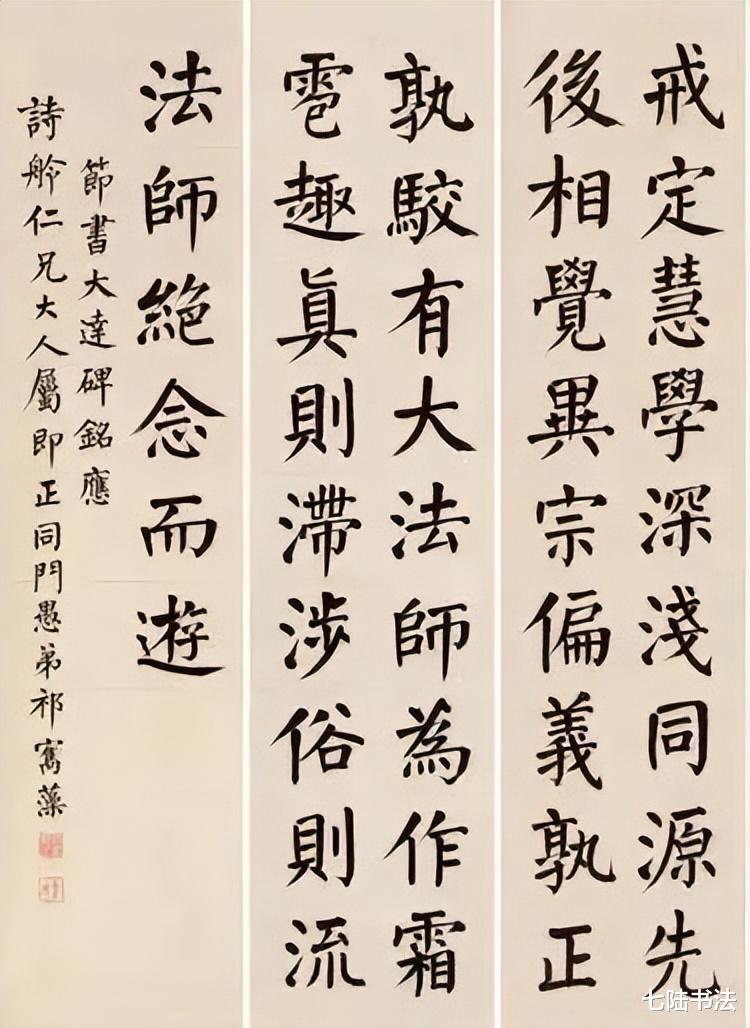 戒定慧學深淺同源先
後相覺異宗偏義孰正
孰駮有大法師為作霜
雹趣眞則滯涉俗則流
法師絕念而遊
節書大達碑銘應
詩舲仁兄大人屬即正同門愚弟祁寯藻
七陆书法